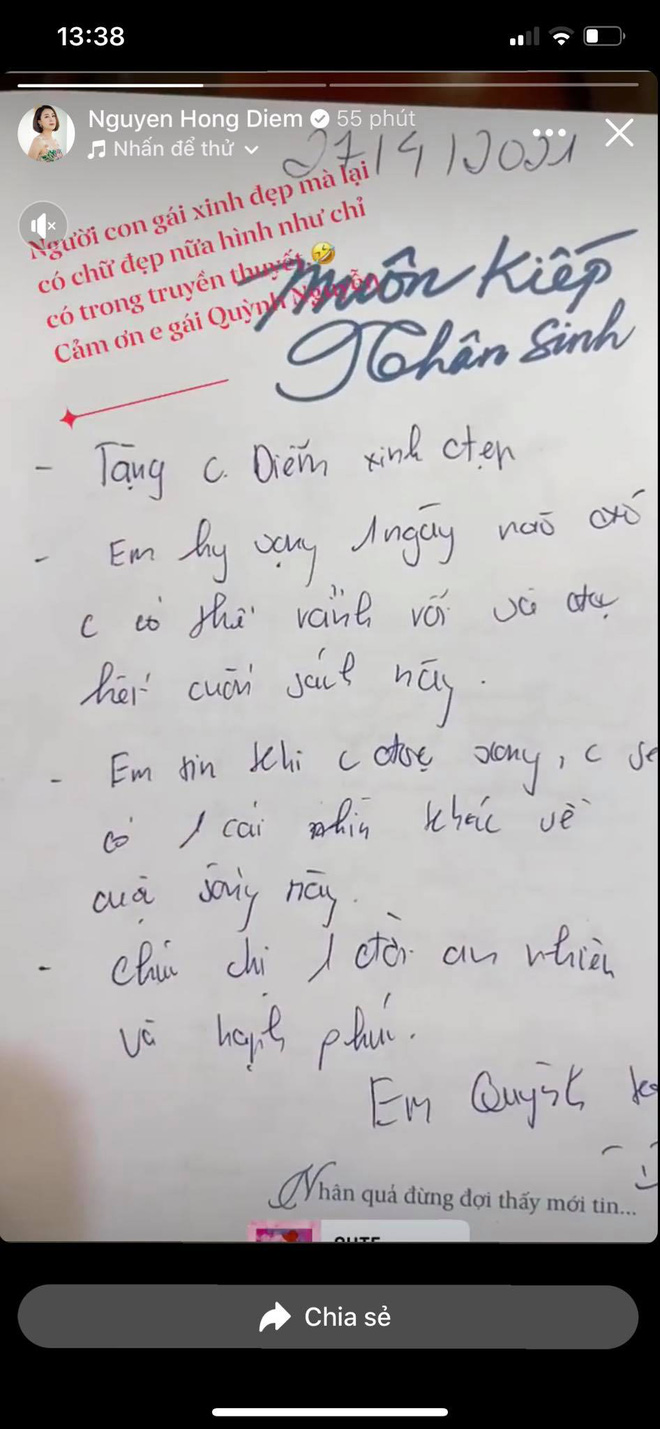 13:38
Nguyen Hong Diem 55 phút
Nhấn để thử
27/4/2021
Người con gái xinh đẹp mà lại
có chữ đẹp nữa hình như chỉ
có trong truyền thuyết 🤣
Cảm ơn e gái Quỳnh Nguyễn
Muôn Kiếp
Nhân Sinh
- Tặng c. Diễm xinh đẹp
- Em hy vọng 1 ngày nào đó
c có thể rảnh rỗi và đọc
hết cuốn sách này.
- Em tin khi c đọc xong, c sẽ
có 1 cái nhìn khác về
cuộc sống này.
- Chúc chị 1 đời an nhiên
và hạnh phúc.
Em Quỳnh
Nhân quả đừng đợi thấy mới tin...
Chia sẻ